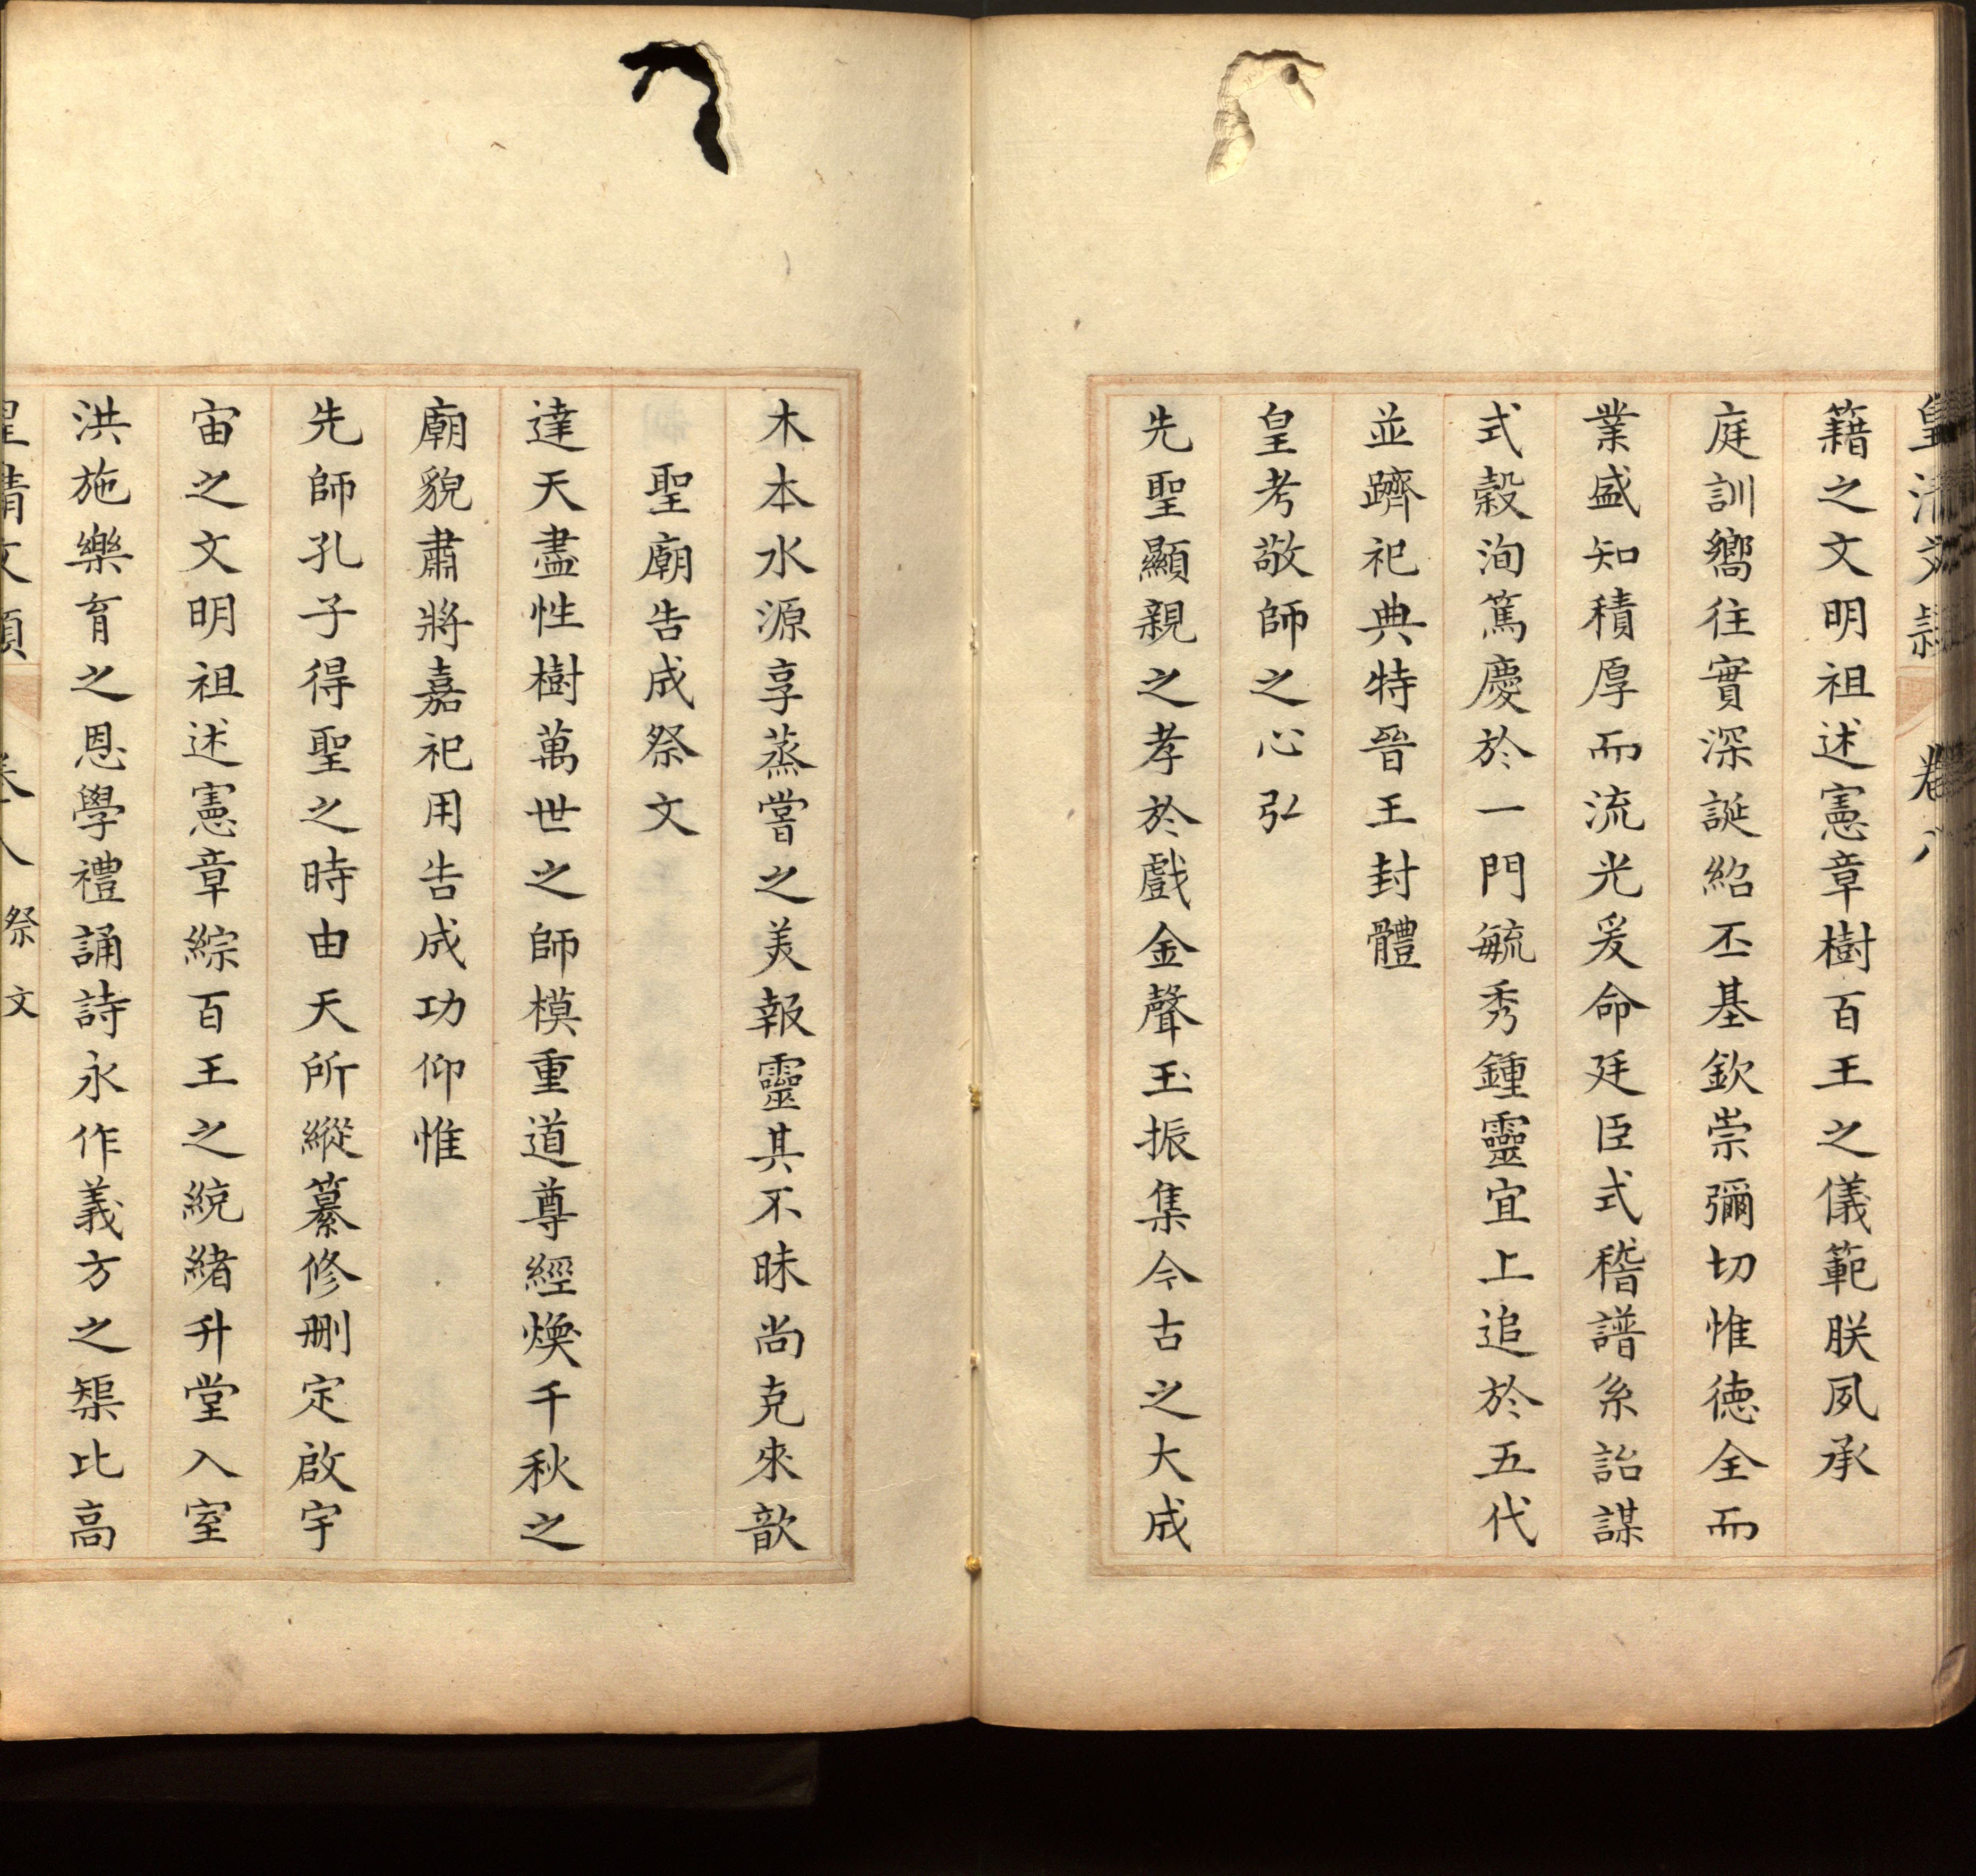 皇清文頴 卷八
籍之文明祖述憲章樹百王之儀範朕夙承
庭訓嚮往實深誕紹丕基欽崇彌切惟德全而
業盛知積厚而流光爰命廷臣式稽譜系詒謀
式穀洵篤慶於一門毓秀鍾靈宜上追於五代
並躋祀典特晉王封體
皇考敬師之心弘
先聖顯親之孝於戲金聲玉振集今古之大成
木本水源享蒸嘗之美報靈其不昧尚克來歆
聖廟告成祭文
達天盡性樹萬世之師模重道尊經煥千秋之
廟貌肅將嘉祀用告成功仰惟
先師孔子得聖之時由天所縱纂修刪定啟宇
宙之文明祖述憲章綜百王之統緒升堂入室
洪施樂育之恩學禮誦詩永作義方之榘比高
皇清文頴 卷八 祭文